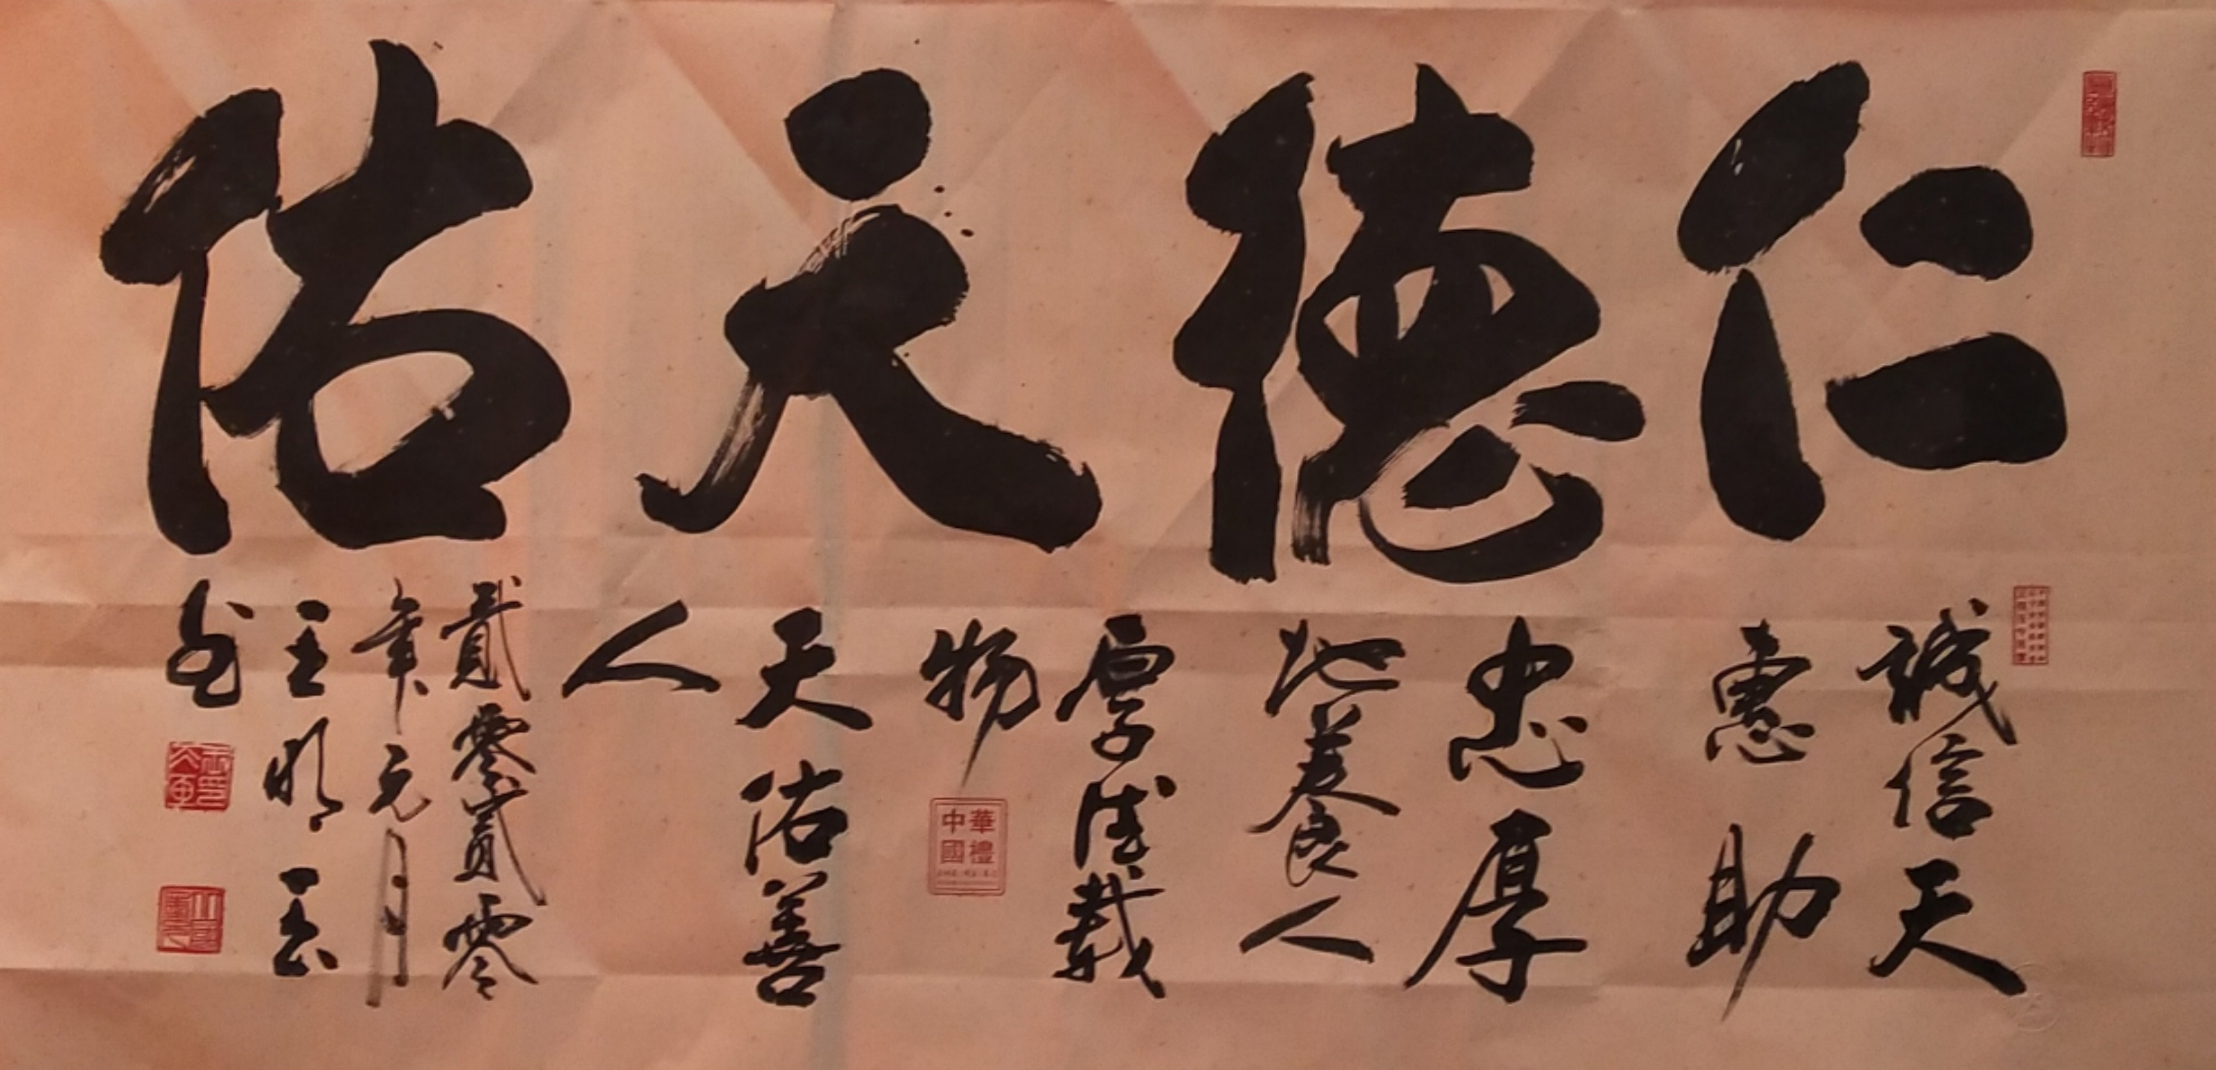 仁德天佑
誠信天
惠助
忠厚
地養人
厚德載
物
天佑善
人
貳零貳零
年元月
王明玉
書
中華
國禮